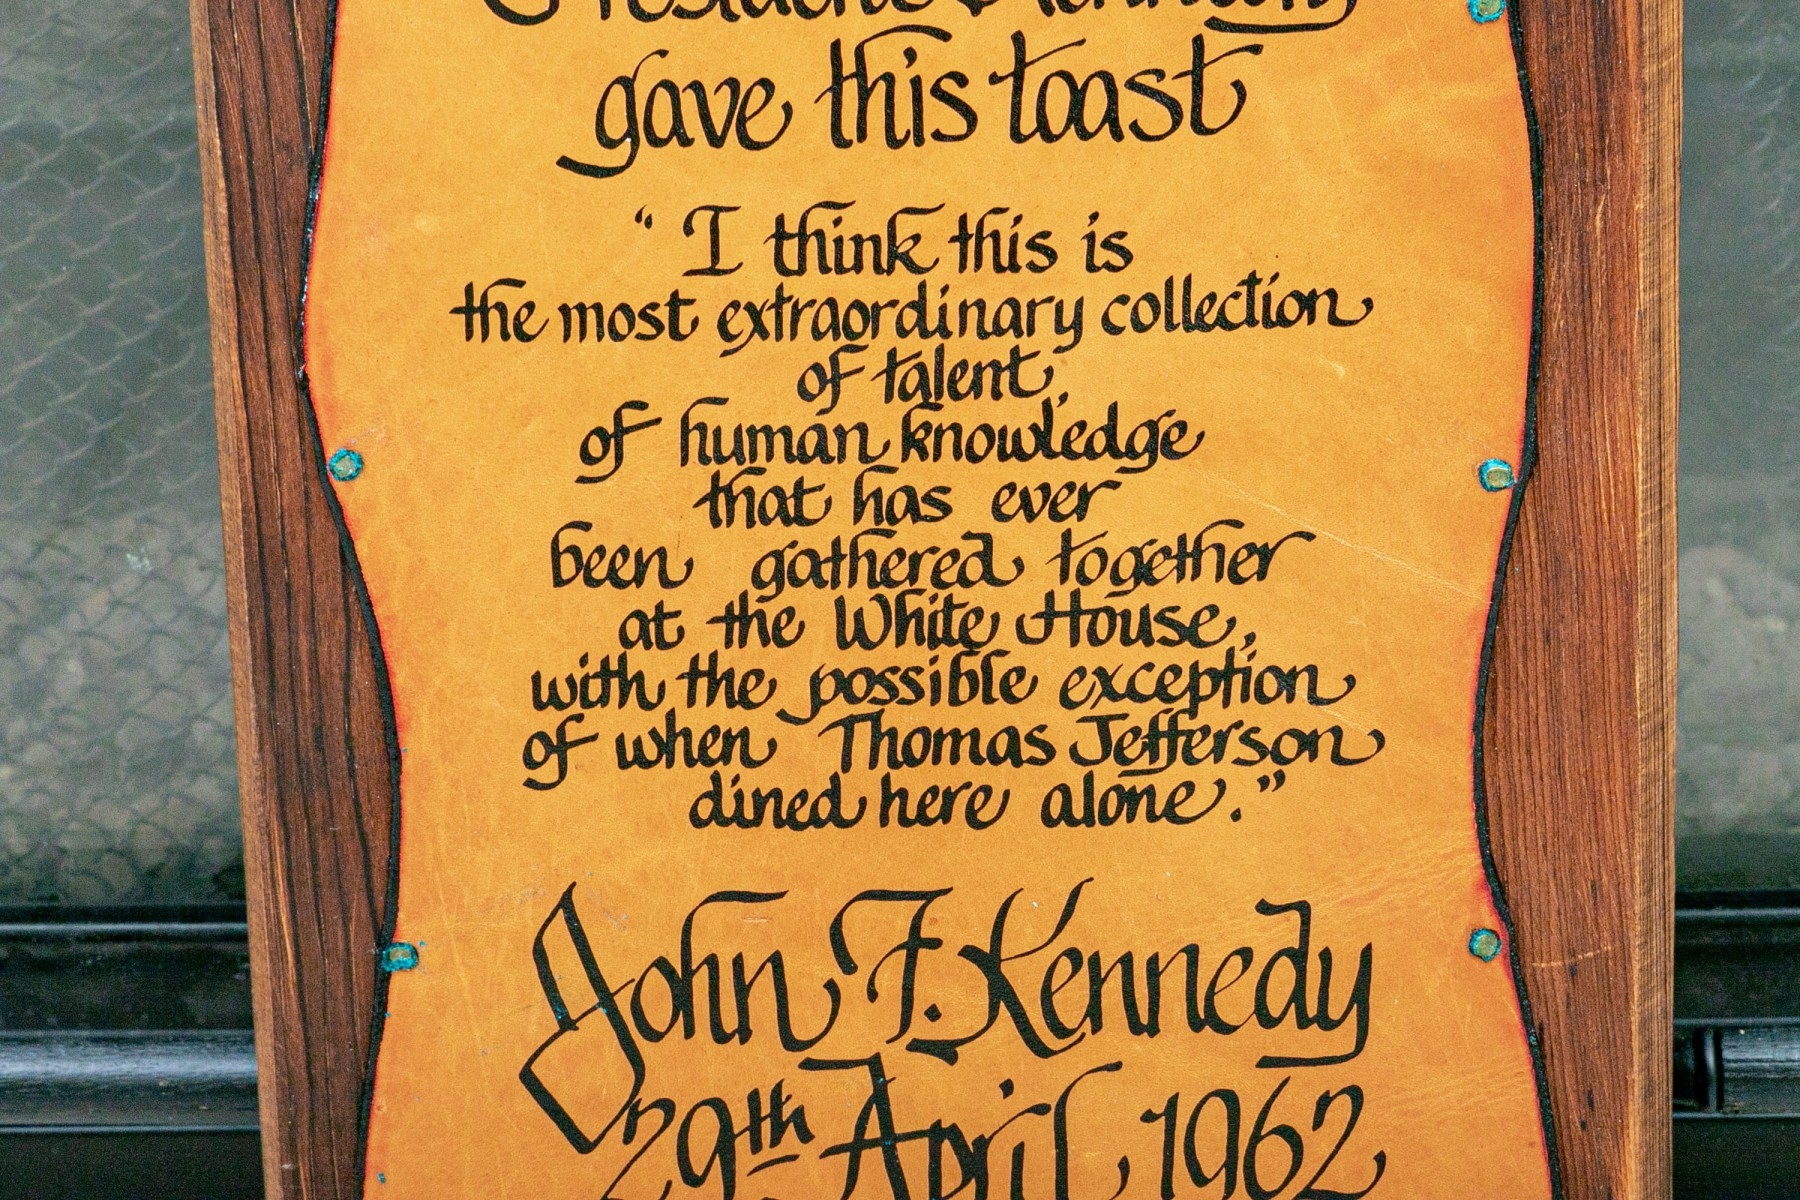 President Kennedy
gave this toast
“ I think this is
the most extraordinary collection
of talent,
of human knowledge
that has ever
been gathered together
at the White House,
with the possible exception
of when Thomas Jefferson
dined here alone.”
John F. Kennedy
29th April 1962